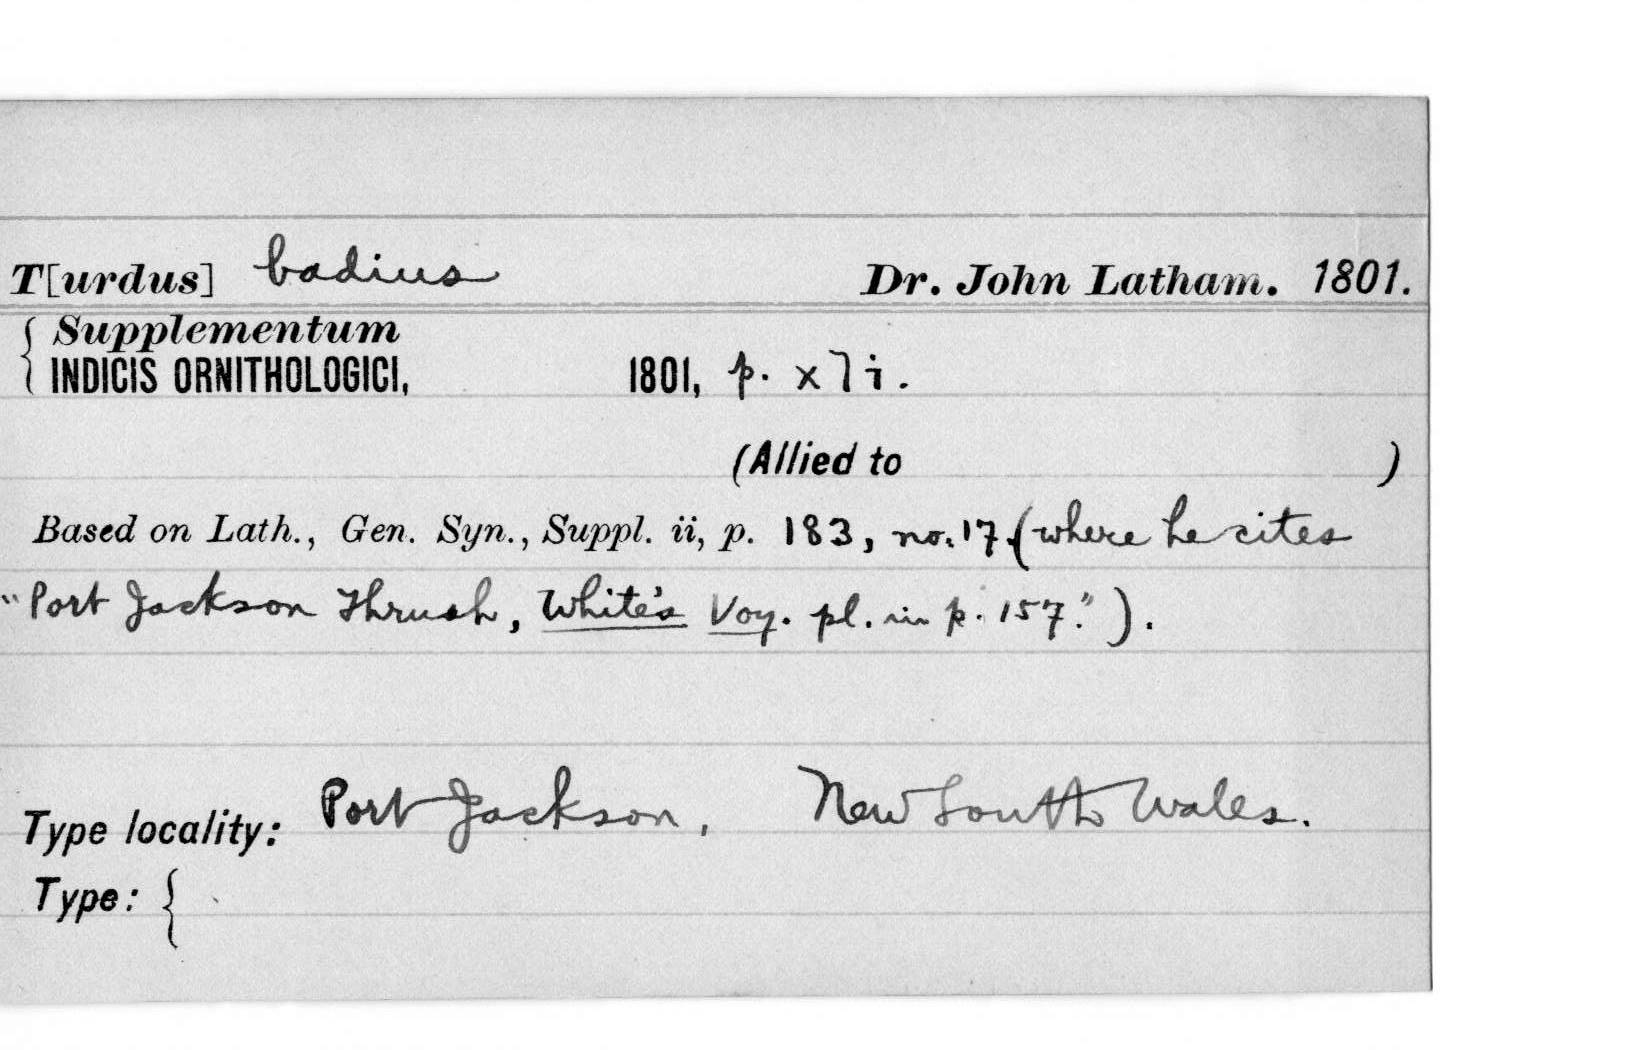 T[urdus] badius Dr. John Latham. 1801.
{ Supplementum
INDICIS ORNITHOLOGICI, 1801, p. xli.
(Allied to )
Based on Lath., Gen. Syn., Suppl. ii, p. 183, no. 17 (where he cites
"Port Jackson Thrush, White's Voy. pl. in p. 157.").
Type locality: Port Jackson, New South Wales.
Type: {